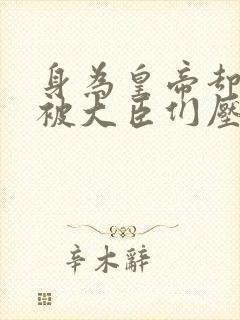 身為皇帝却
被大臣们壓
辛木辭